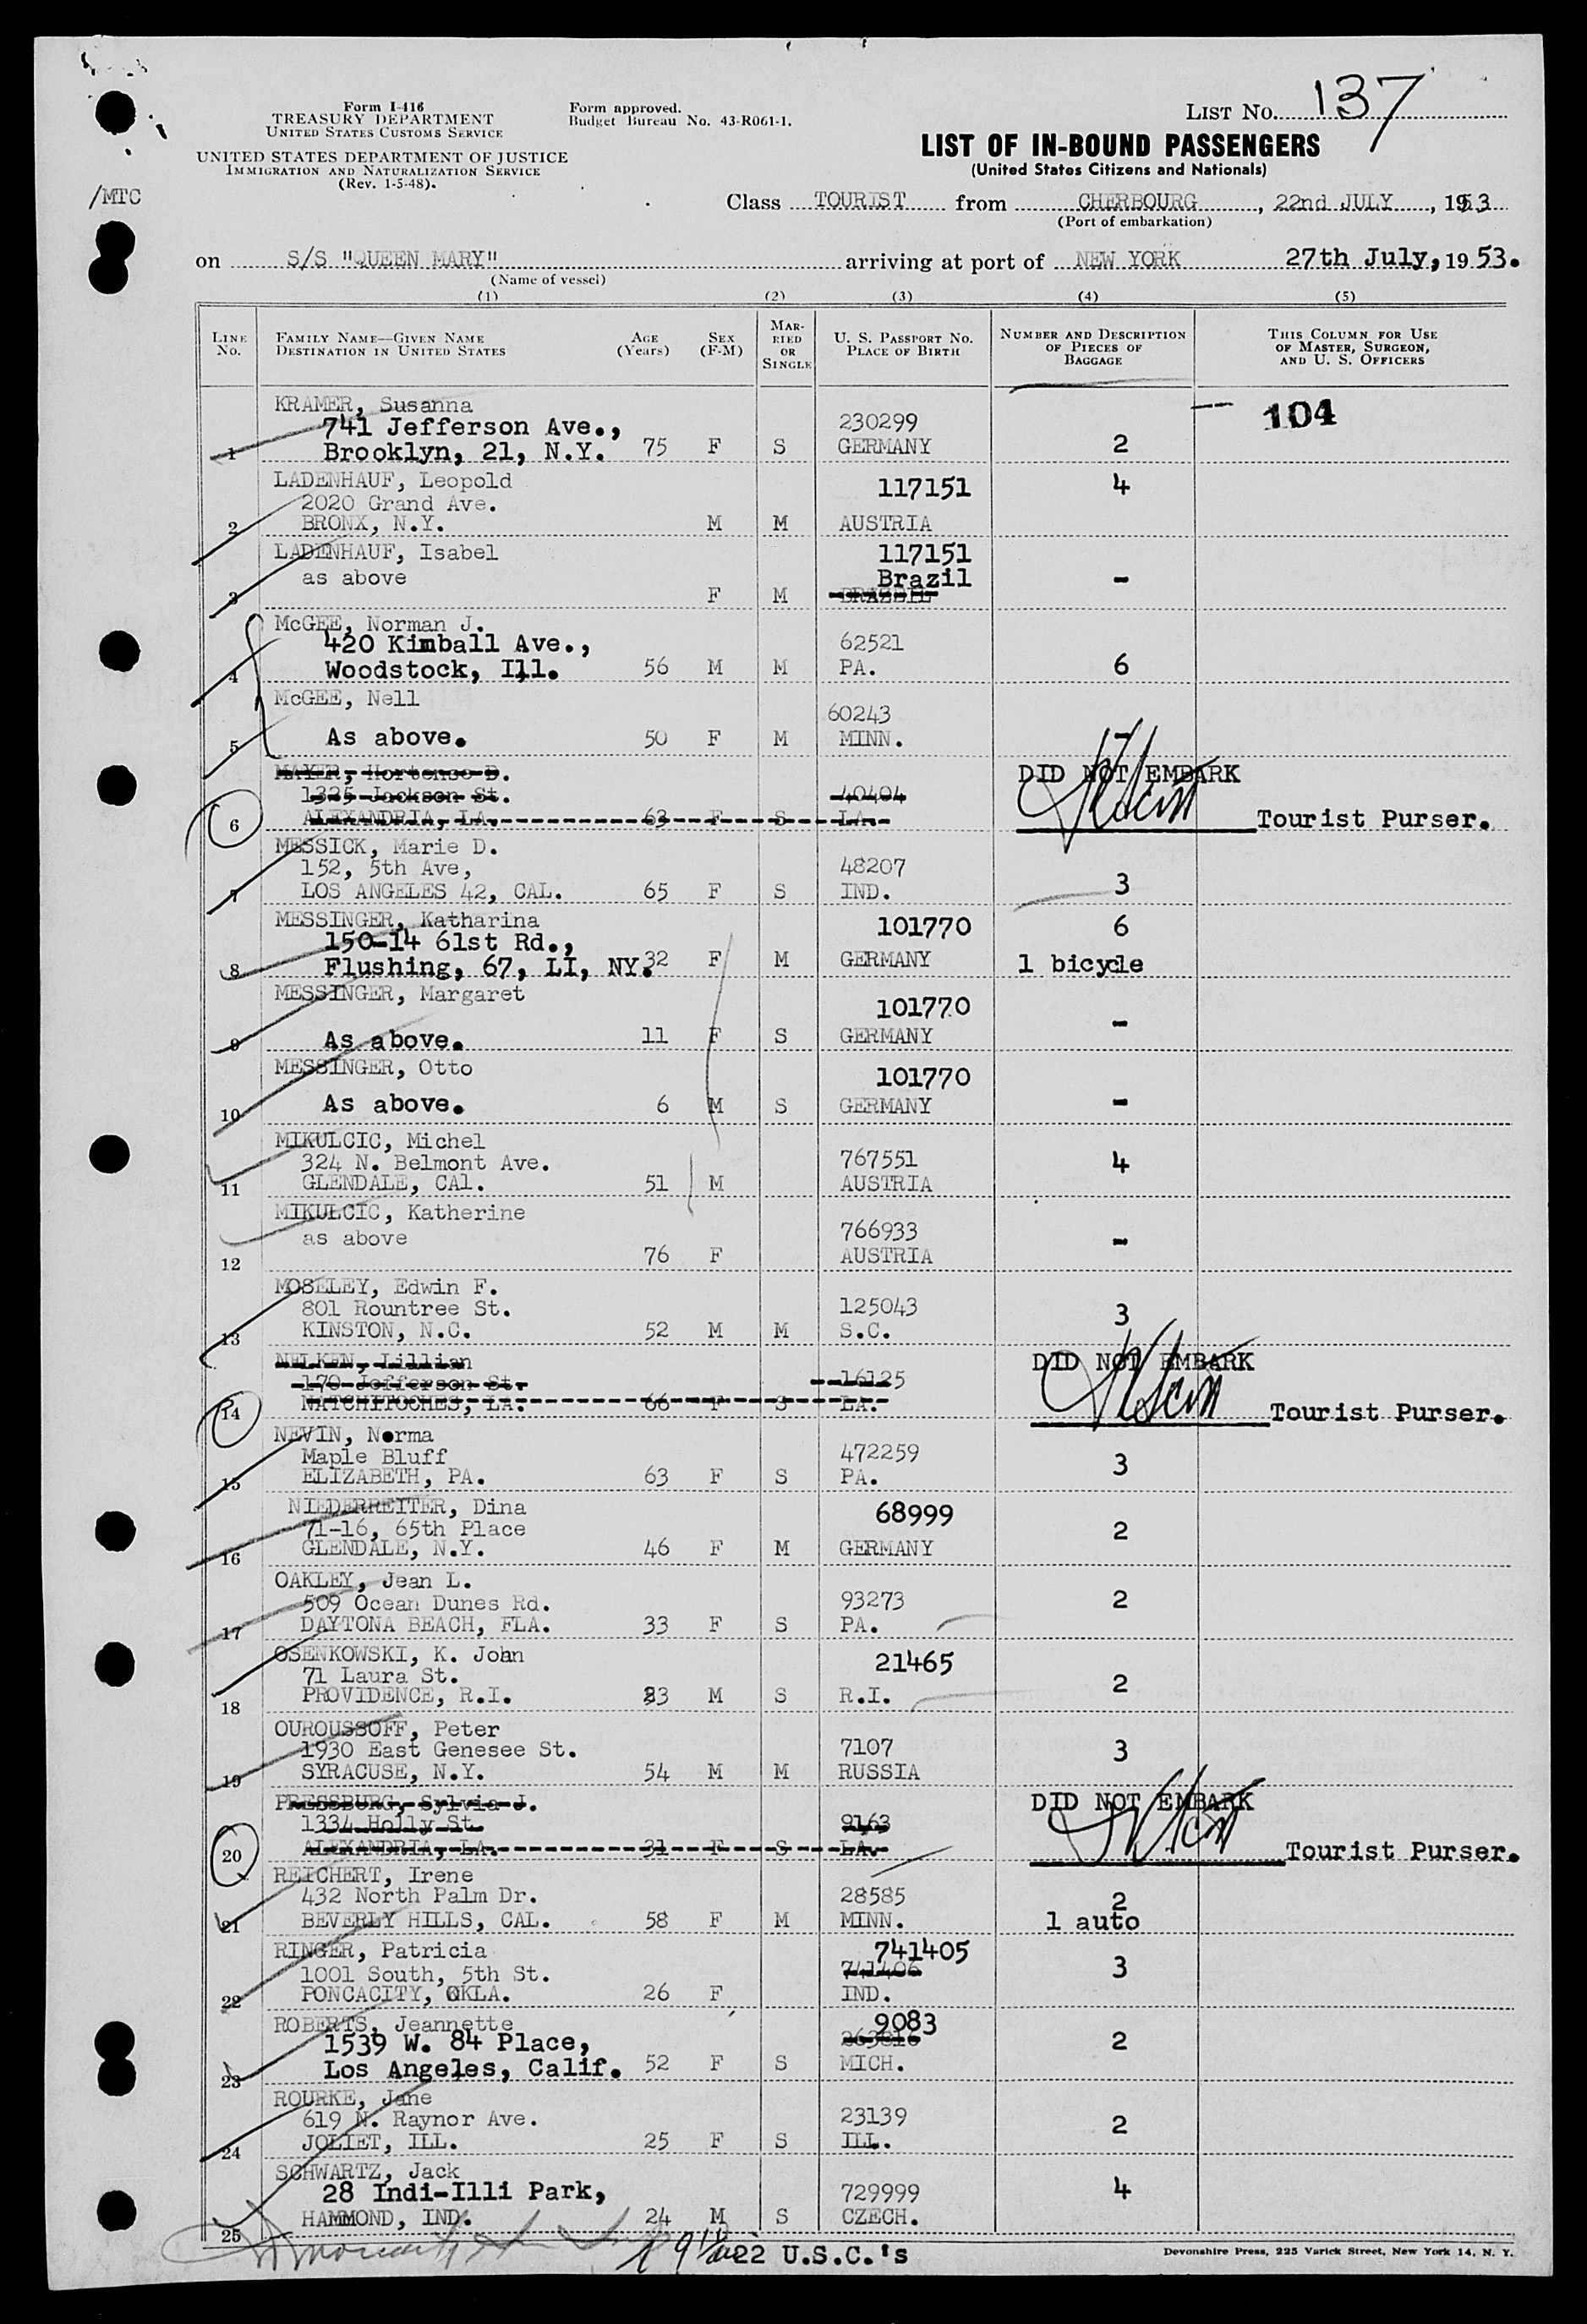 Form I-416
TREASURY DEPARTMENT
UNITED STATES CUSTOMS SERVICE
UNITED STATES DEPARTMENT OF JUSTICE
IMMIGRATION AND NATURALIZATION SERVICE
(Rev. 1-5-48).
Form approved.
Budget Bureau No. 43-R061-1.
LIST No. 137
LIST OF IN-BOUND PASSENGERS
(United States Citizens and Nationals)
/MTC
Class TOURIST from CHERBOURG, 22nd JULY, 1953
(Port of embarkation)
on S/S "QUEEN MARY" arriving at port of NEW YORK 27th July, 1953.
(Name of vessel)
(1) (2) (3) (4) (5)
LINE No. FAMILY NAME—GIVEN NAME DESTINATION IN UNITED STATES AGE (Years) SEX (F-M) MARRIED OR SINGLE U. S. PASSPORT No. PLACE OF BIRTH NUMBER AND DESCRIPTION OF PIECES OF BAGGAGE THIS COLUMN FOR USE OF MASTER, SURGEON, AND U. S. OFFICERS
KRAMER, Susanna 104
741 Jefferson Ave., 230299
1 Brooklyn, 21, N.Y. 75 F S GERMANY 2
LADENHAUF, Leopold 117151 4
2020 Grand Ave.
2 BRONX, N.Y. M M AUSTRIA
LADENHAUF, Isabel 117151
as above Brazil -
3 F M BRAZIL
McGEE, Norman J.
420 Kimball Ave., 62521
4 Woodstock, Ill. 56 M M PA. 6
McGEE, Nell 60243
5 As above. 50 F M MINN. -
MAYER, Hortense B. DID NOT EMBARK
1325 Jackson St. 40404
6 ALEXANDRIA, LA. 63 F S LA. Tourist Purser.
MESSICK, Marie D.
152, 5th Ave, 48207
7 LOS ANGELES 42, CAL. 65 F S IND. 3
MESSINGER, Katharina 101770 6
150-14 61st Rd.,
8 Flushing, 67, LI, NY. 32 F M GERMANY 1 bicycle
MESSINGER, Margaret 101770
9 As above. 11 F S GERMANY -
MESSINGER, Otto 101770
10 As above. 6 M S GERMANY -
MIKULCIC, Michel
324 N. Belmont Ave. 767551 4
11 GLENDALE, CAl. 51 M AUSTRIA
MIKULCIC, Katherine
as above 766933
12 76 F AUSTRIA -
MOSELEY, Edwin F.
801 Rountree St. 125043 3
13 KINSTON, N.C. 52 M M S.C.
NELKEN, Lillian DID NOT EMBARK
170 Jefferson St. 16125
14 NATCHITOCHES, LA. 66 F S LA. Tourist Purser.
NEVIN, Norma
Maple Bluff 472259
15 ELIZABETH, PA. 63 F S PA. 3
NIEDERREITER, Dina 68999
71-16, 65th Place 2
16 GLENDALE, N.Y. 46 F M GERMANY
OAKLEY, Jean L.
509 Ocean Dunes Rd. 93273 2
17 DAYTONA BEACH, FLA. 33 F S PA.
OSENKOWSKI, K. John 21465
71 Laura St. 2
18 PROVIDENCE, R.I. 23 M S R.I.
OUROUSSOFF, Peter
1930 East Genesee St. 7107 3
19 SYRACUSE, N.Y. 54 M M RUSSIA
PRESSBURG, Sylvia J. DID NOT EMBARK
1334 Holly St 9163
20 ALEXANDRIA, LA. 31 F S LA. Tourist Purser.
REICHERT, Irene
432 North Palm Dr. 28585 2
21 BEVERLY HILLS, CAL. 58 F M MINN. 1 auto
RINGER, Patricia 741405
1001 South, 5th St. 741406 3
22 PONCACITY, OKLA. 26 F IND.
ROBERTS, Jeannette 9083
1539 W. 84 Place, 2
23 Los Angeles, Calif. 52 F S MICH.
ROURKE, Jane
619 N. Raynor Ave. 23139 2
24 JOLIET, ILL. 25 F S ILL.
SCHWARTZ, Jack
28 Indi-Illi Park, 729999 4
25 HAMMOND, IND. 24 M S CZECH.
22 U.S.C.'s
Devonshire Press, 225 Varick Street, New York 14, N. Y.